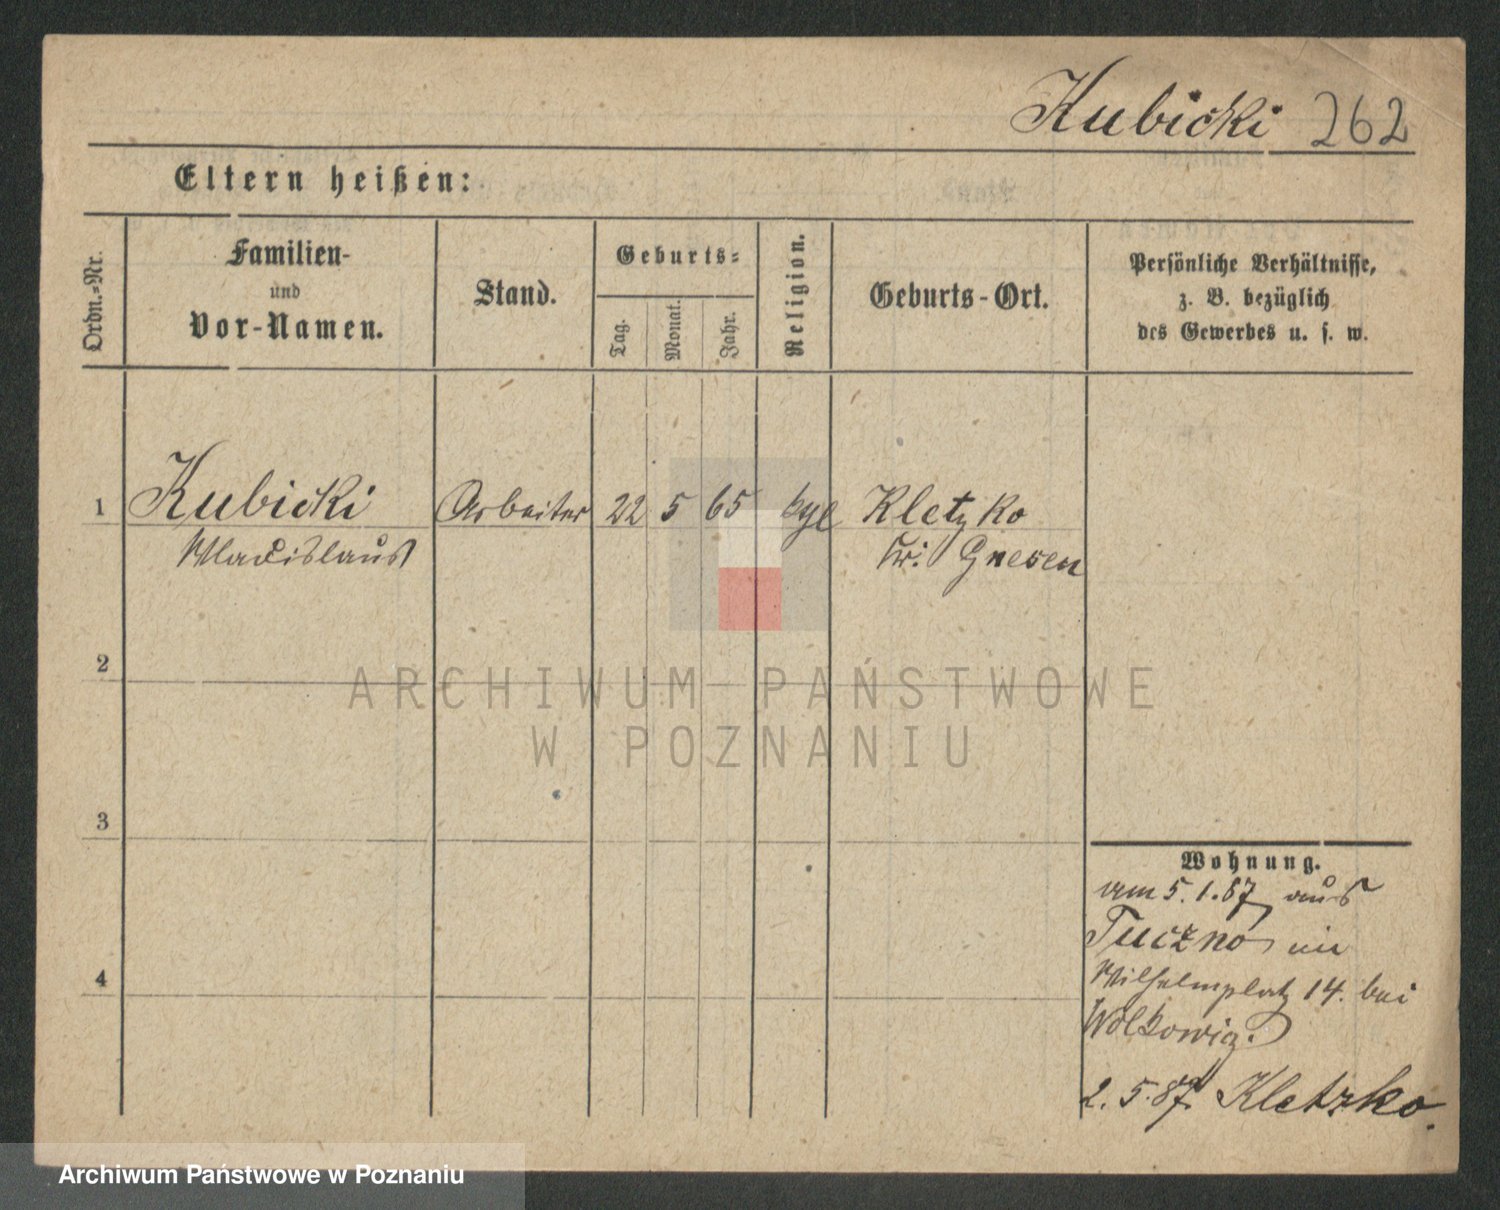 Kubicki 262
Eltern heißen:
Ordn.-Nr.
Familien-
und
Vor-Namen.
Stand.
Geburts-
Tag.
Monat.
Jahr.
Religion.
Geburts-Ort.
Persönliche Verhältnisse,
z. B. bezüglich
des Gewerbes u. s. w.
1 Kubicki Arbeiter 22 5 65 Kletzko
Wladislaus Kr: Gnesen
2
3
4
Wohnung.
am 5.1.87 aus
Tuczno in
Wilhelmplatz 14. bei
2.5.87. Kletzko.
ARCHIWUM PAŃSTWOWE
W POZNANIU
Archiwum Państwowe w Poznaniu